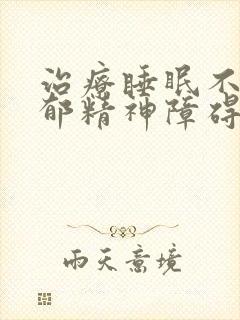 治疗睡眠不
郁精神障碍
雨天意境